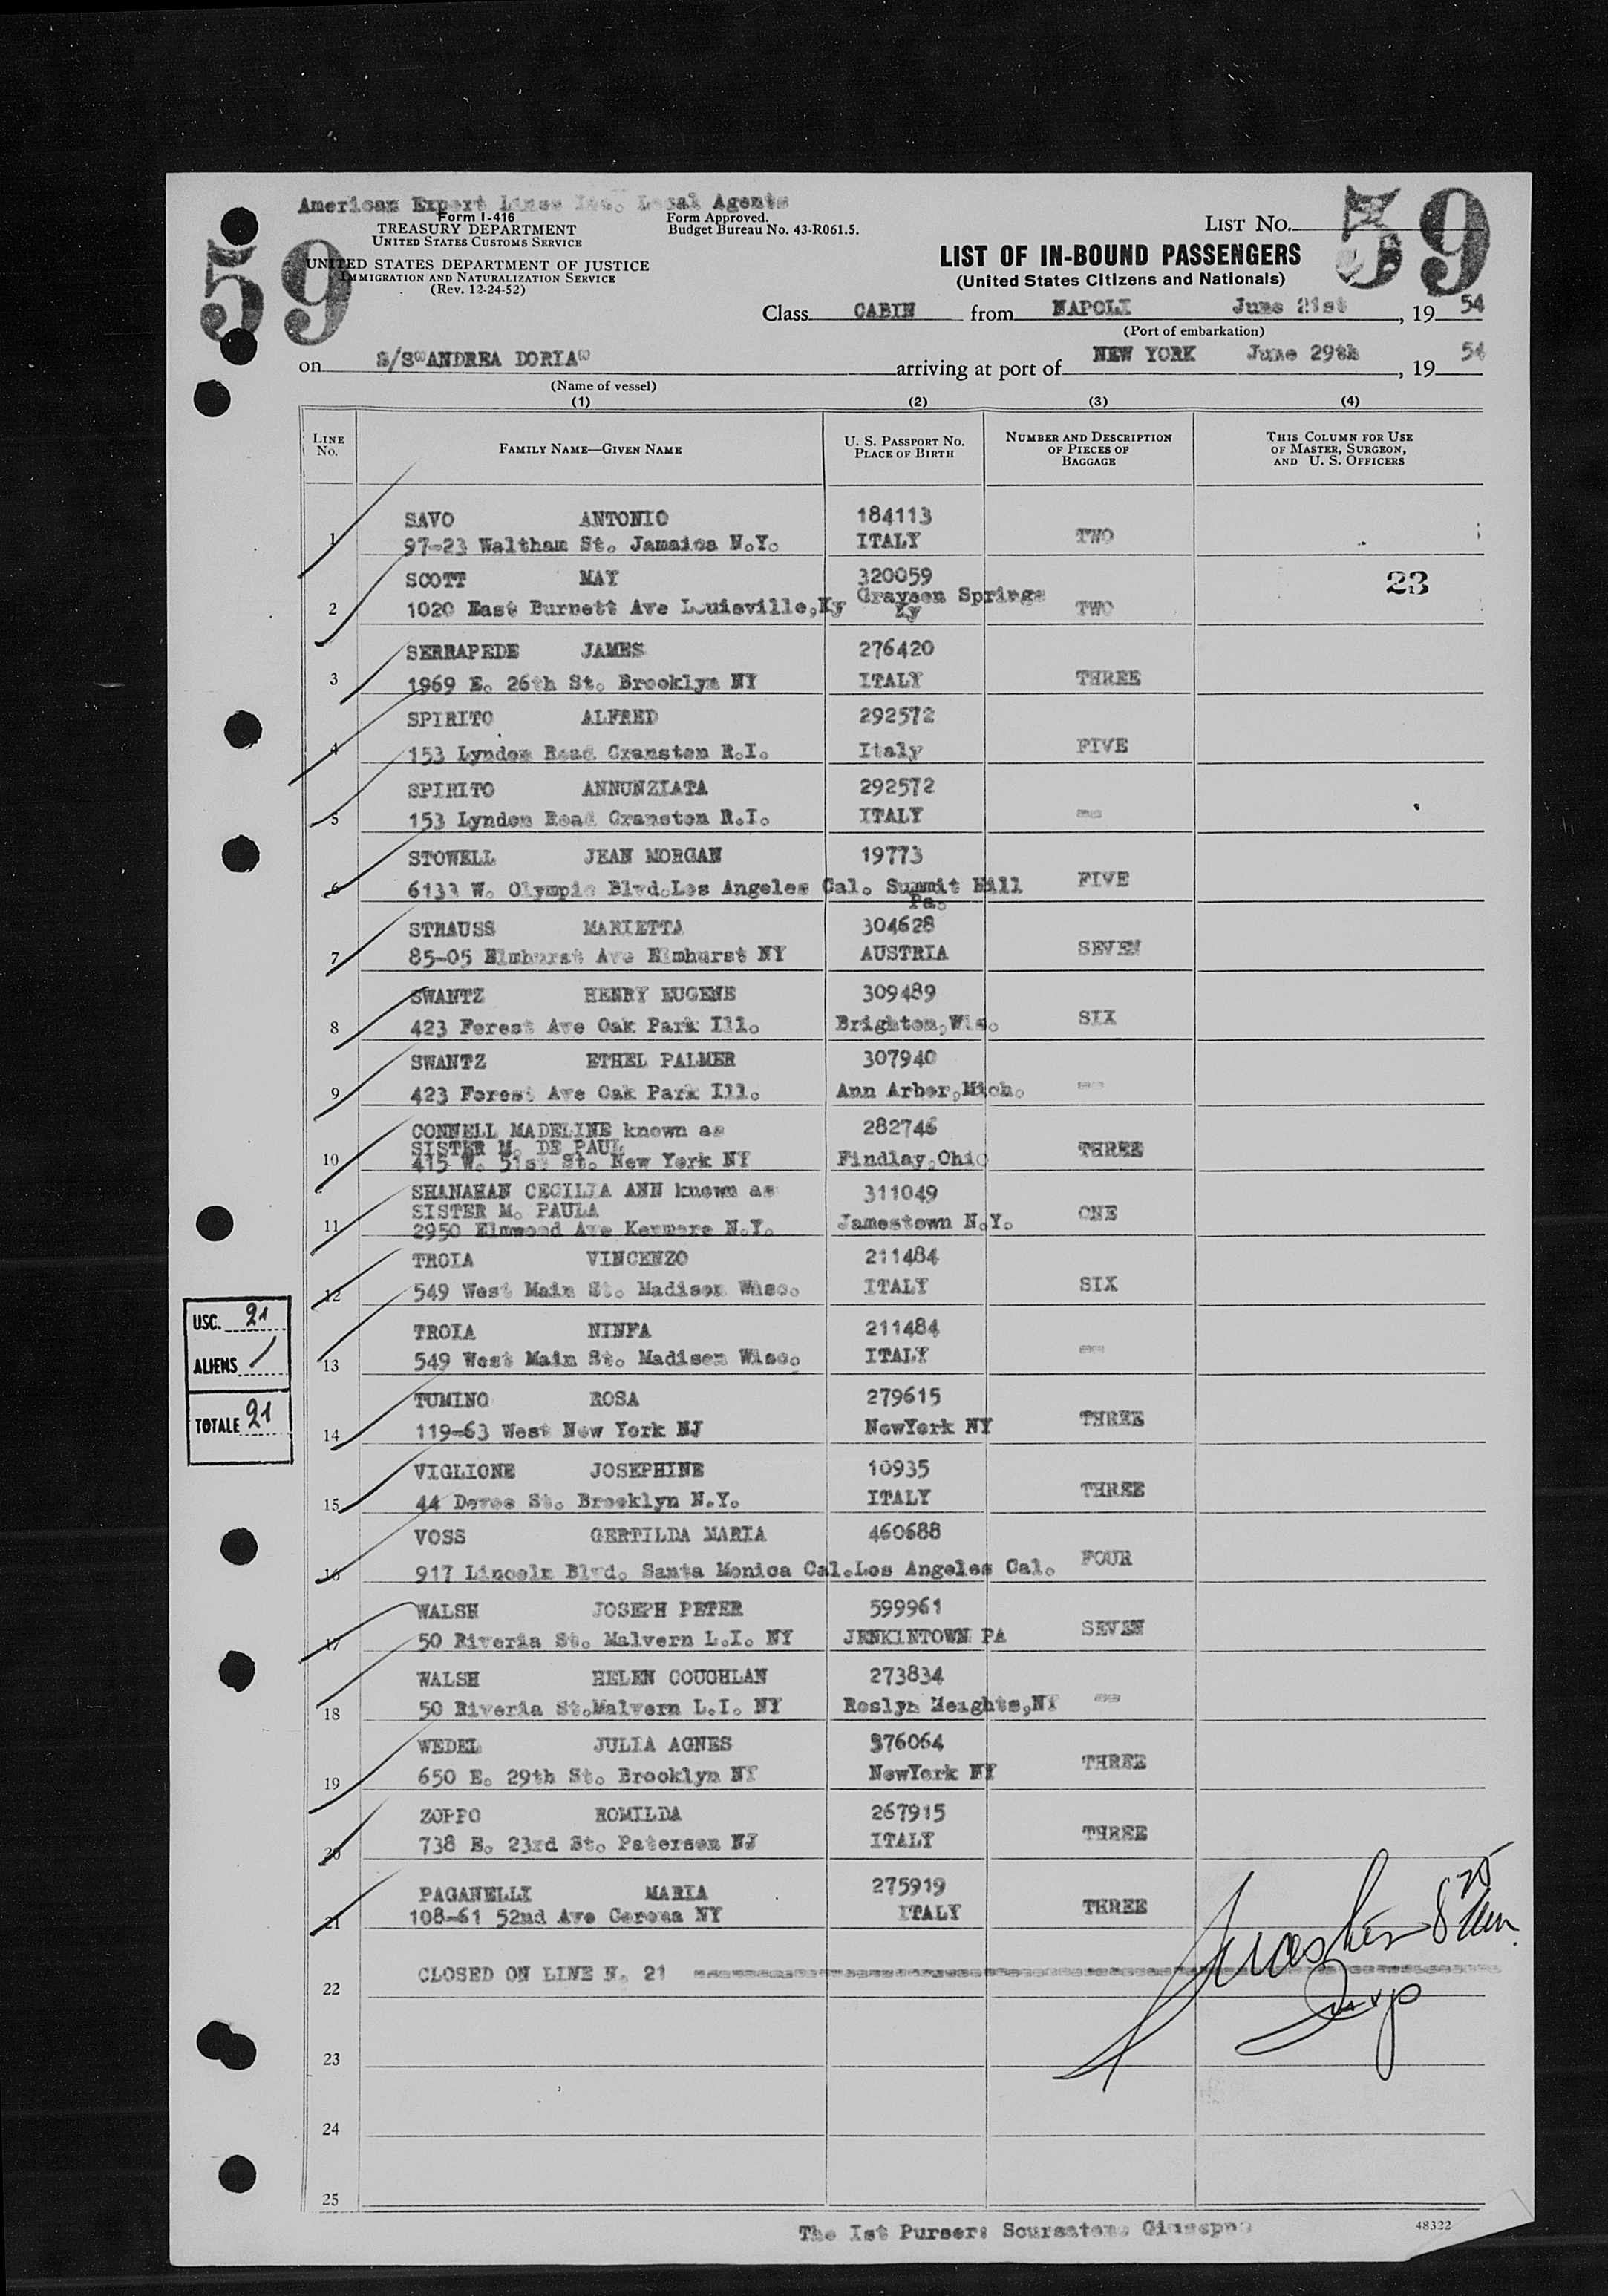 American Export Lines Inc. Legal Agents
Form I-416
TREASURY DEPARTMENT
UNITED STATES CUSTOMS SERVICE
UNITED STATES DEPARTMENT OF JUSTICE
IMMIGRATION AND NATURALIZATION SERVICE
(Rev. 12-24-52)
Form Approved.
Budget Bureau No. 43-R061.5.
LIST No.
59
59
LIST OF IN-BOUND PASSENGERS
(United States Citizens and Nationals)
Class CABIN from NAPOLI June 21st, 19 54
(Port of embarkation)
on S/S "ANDREA DORIA" arriving at port of NEW YORK June 29th, 19 54
(Name of vessel)
(1) (2) (3) (4)
LINE No. FAMILY NAME—GIVEN NAME U. S. PASSPORT NO. PLACE OF BIRTH NUMBER AND DESCRIPTION OF PIECES OF BAGGAGE THIS COLUMN FOR USE OF MASTER, SURGEON, AND U. S. OFFICERS
SAVO ANTONIO 184113
1 97-23 Waltham St. Jamaica N.Y. ITALY TWO
SCOTT MAY 320059 23
2 1020 East Burnett Ave Louisville,Ky Grayson Springs Ky TWO
SERRAPEDE JAMES 276420
3 1969 E. 26th St. Brooklyn NY ITALY THREE
SPIRITO ALFRED 292572
4 153 Lyndon Road Cranston R.I. Italy FIVE
SPIRITO ANNUNZIATA 292572
5 153 Lyndon Road Cranston R.I. ITALY --
STOWELL JEAN MORGAN 19773
6 6133 W. Olympic Blvd.Los Angeles Cal. Summit Hill Pa. FIVE
STRAUSS MARIETTA 304628
7 85-05 Elmhurst Ave Elmhurst NY AUSTRIA SEVEN
SWANTZ HENRY EUGENE 309489
8 423 Forest Ave Oak Park Ill. Brighton,Wis. SIX
SWANTZ ETHEL PALMER 307940
9 423 Forest Ave Oak Park Ill. Ann Arbor,Mich. --
CONNELL MADELINE known as 282746
SISTER M. DE PAUL
10 415 W. 51st St. New York NY Findlay,Ohio THREE
SHANAHAN CECILIA ANN known as 311049
SISTER M. PAULA
11 2950 Elmwood Ave Kenmore N.Y. Jamestown N.Y. ONE
TROIA VINCENZO 211484
12 549 West Main St. Madison Wisc. ITALY SIX
TROIA NINFA 211484
13 549 West Main St. Madison Wisc. ITALY --
TUMINO ROSA 279615
14 119-63 West New York NJ NewYork NY THREE
VIGLIONE JOSEPHINE 10935
15 44 Devoe St. Brooklyn N.Y. ITALY THREE
VOSS GERTILDA MARIA 460688
16 917 Lincoln Blvd. Santa Monica Cal.Los Angeles Cal. FOUR
WALSH JOSEPH PETER 599961
17 50 Riveria St. Malvern L.I. NY JENKINTOWN PA SEVEN
WALSH HELEN COUGHLAN 273834
18 50 Riveria St.Malvern L.I. NY Roslyn Heights,NY --
WEDEL JULIA AGNES 376064
19 650 E. 29th St. Brooklyn NY NewYork NY THREE
ZOPPO ROMILDA 267915
20 738 E. 23rd St. Paterson NJ ITALY THREE
PAGANELLI MARIA 275919
21 108-61 52nd Ave Corona NY ITALY THREE
22 CLOSED ON LINE N. 21
23
24
25
USC. 21
ALIENS /
TOTALE 21
The Ist Purser:
48322